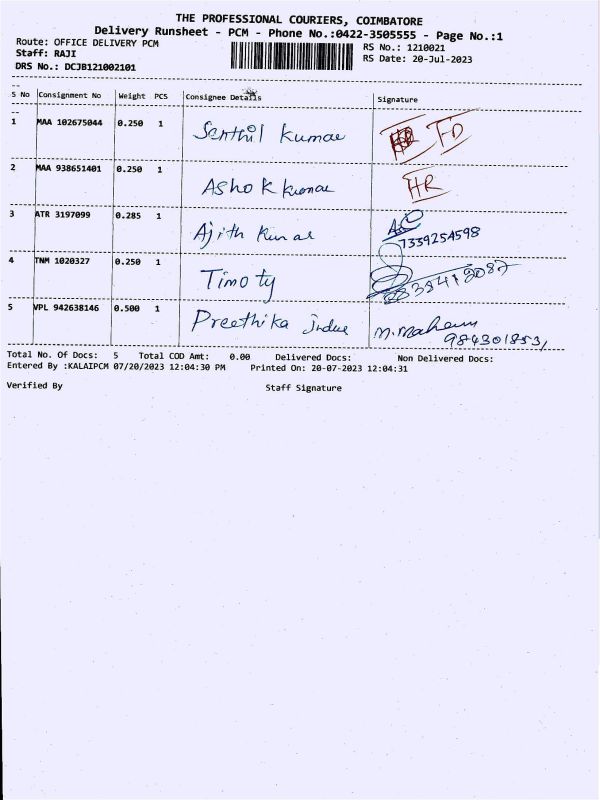 THE PROFESSIONAL COURIERS, COIMBATORE
Delivery Runsheet - PCM - Phone No.:0422-3505555 - Page No.:1
Route: OFFICE DELIVERY PCM RS No.: 1210021
Staff: RAJI RS Date: 20-Jul-2023
DRS No.: DCJB121002101
S No Consignment No Weight PCS Consignee Details Signature
1 MAA 102675044 0.250 1 Senthil Kumar FD
2 MAA 938651401 0.250 1 Ashok Kumar HR
3 ATR 3197099 0.285 1 Ajith Kumar
7339254598
4 TNM 1020327 0.250 1 Timoty
5 VPL 942638146 0.500 1 Preethika
984301853,
Total No. Of Docs: 5 Total COD Amt: 0.00 Delivered Docs: Non Delivered Docs:
Entered By :KALAIPCM 07/20/2023 12:04:30 PM Printed On: 20-07-2023 12:04:31
Verified By Staff Signature